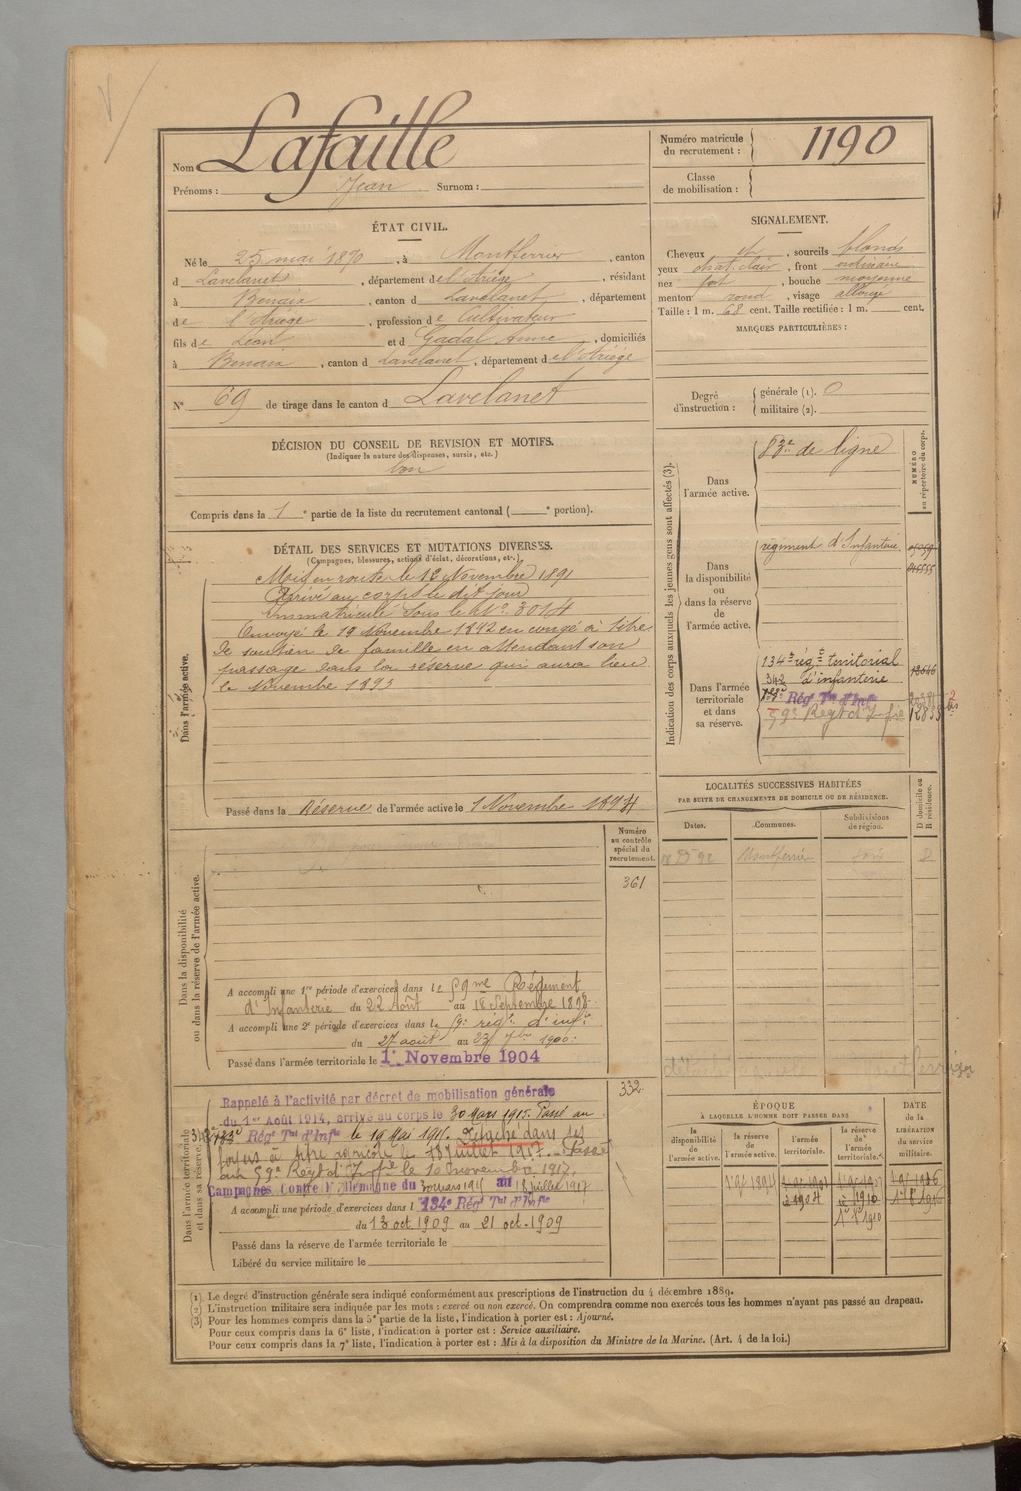 Nom Lafaille
Prénoms : Jean Surnom :
Numéro matricule du recrutement : 1190
Classe de mobilisation :
ÉTAT CIVIL.
Né le 25 mai 1870, à Montferrier, canton
d Lavelanet, département de l'Ariège, résidant
à Benaix, canton d Lavelanet, département
de l'Ariège, profession de Cultivateur
fils de Léon et d Gadal Anne, domiciliés
à Benaix, canton d Lavelanet, département de l'Ariège
N° 69 de tirage dans le canton d Lavelanet
SIGNALEMENT.
Cheveux et, sourcils blonds
yeux chat. clair, front ordinaire
nez fort, bouche moyenne
menton rond, visage allongé
Taille : 1 m. 68 cent. Taille rectifiée : 1 m. cent.
MARQUES PARTICULIÈRES :
Degré d'instruction : générale (1). 0
militaire (2).
DÉCISION DU CONSEIL DE REVISION ET MOTIFS.
(Indiquer la nature des dispenses, sursis, etc.)
bon
Compris dans la 1e partie de la liste du recrutement cantonal ( e portion).
DÉTAIL DES SERVICES ET MUTATIONS DIVERSES.
(Campagnes, blessures, actions d'éclat, décorations, etc.)
Dans l'armée active.
Mis en route le 12 Novembre 1891
Arrivé au corps le dit jour
immatriculé sous le N° 3014
Envoyé le 19 Novembre 1892 en congé à titre
de soutien de famille en attendant son
passage dans la réserve qui aura lieu
le Novembre 1893
Passé dans la Réserve de l'armée active le 1 Novembre 1894
Indication des corps auxquels les jeunes gens sont affectés (3).
NUMÉRO au répertoire du corps.
Dans l'armée active.
83e de ligne
Dans la disponibilité ou dans la réserve de l'armée active.
régiment d'Infanterie
Dans l'armée territoriale et dans sa réserve.
134e régt territorial
342 d'infanterie
Régt Tal d'Infie
59e Régt d'Infie
LOCALITÉS SUCCESSIVES HABITÉES
PAR SUITE DE CHANGEMENTS DE DOMICILE OU DE RÉSIDENCE.
Dates. Communes. Subdivisions de région. D domicile ou R résidence.
Montferrier Foix D
Dans la disponibilité ou dans la réserve de l'armée active.
Numéro au contrôle spécial du recrutement.
361
A accompli une 1re période d'exercices dans le 59me Régiment
d'Infanterie du 22 Août au 18 Septembre 1898.
A accompli une 2e période d'exercices dans le 59e régt d'infie
du 27 août au 23 7bre 1900.
Passé dans l'armée territoriale le 1er Novembre 1904
Dans l'armée territoriale et dans sa réserve.
332
Rappelé à l'activité par décret de mobilisation générale
du 1er Août 1914, arrivé au corps le 30 mars 1915. Passé au
Régt Tal d'Infie le 19 Mai 1915. Détaché dans ses
foyers à titre agricole le 18 juillet 1917. Passé
au 59e Régt d'Infie le 10 novembre 1917.
Campagnes Contre l'Allemagne du 30 mars 1915 au 18 juillet 1917
A accompli une période d'exercices dans l 134e Régt Tal d'Infie
du 13 oct. 1909 au 21 oct. 1909
Passé dans la réserve de l'armée territoriale le
Libéré du service militaire le
ÉPOQUE À LAQUELLE L'HOMME DOIT PASSER DANS
la disponibilité de l'armée active. la réserve de l'armée active. l'armée territoriale. la réserve de l'armée territoriale.
DATE de la LIBÉRATION du service militaire.
(1) Le degré d'instruction générale sera indiqué conformément aux prescriptions de l'instruction du 4 décembre 1889.
(2) L'instruction militaire sera indiquée par les mots : exercé ou non exercé. On comprendra comme non exercés tous les hommes n'ayant pas passé au drapeau.
(3) Pour les hommes compris dans la 5e partie de la liste, l'indication à porter est : Ajourné.
Pour ceux compris dans la 6e liste, l'indication à porter est : Service auxiliaire.
Pour ceux compris dans la 7e liste, l'indication à porter est : Mis à la disposition du Ministre de la Marine. (Art. 4 de la loi.)